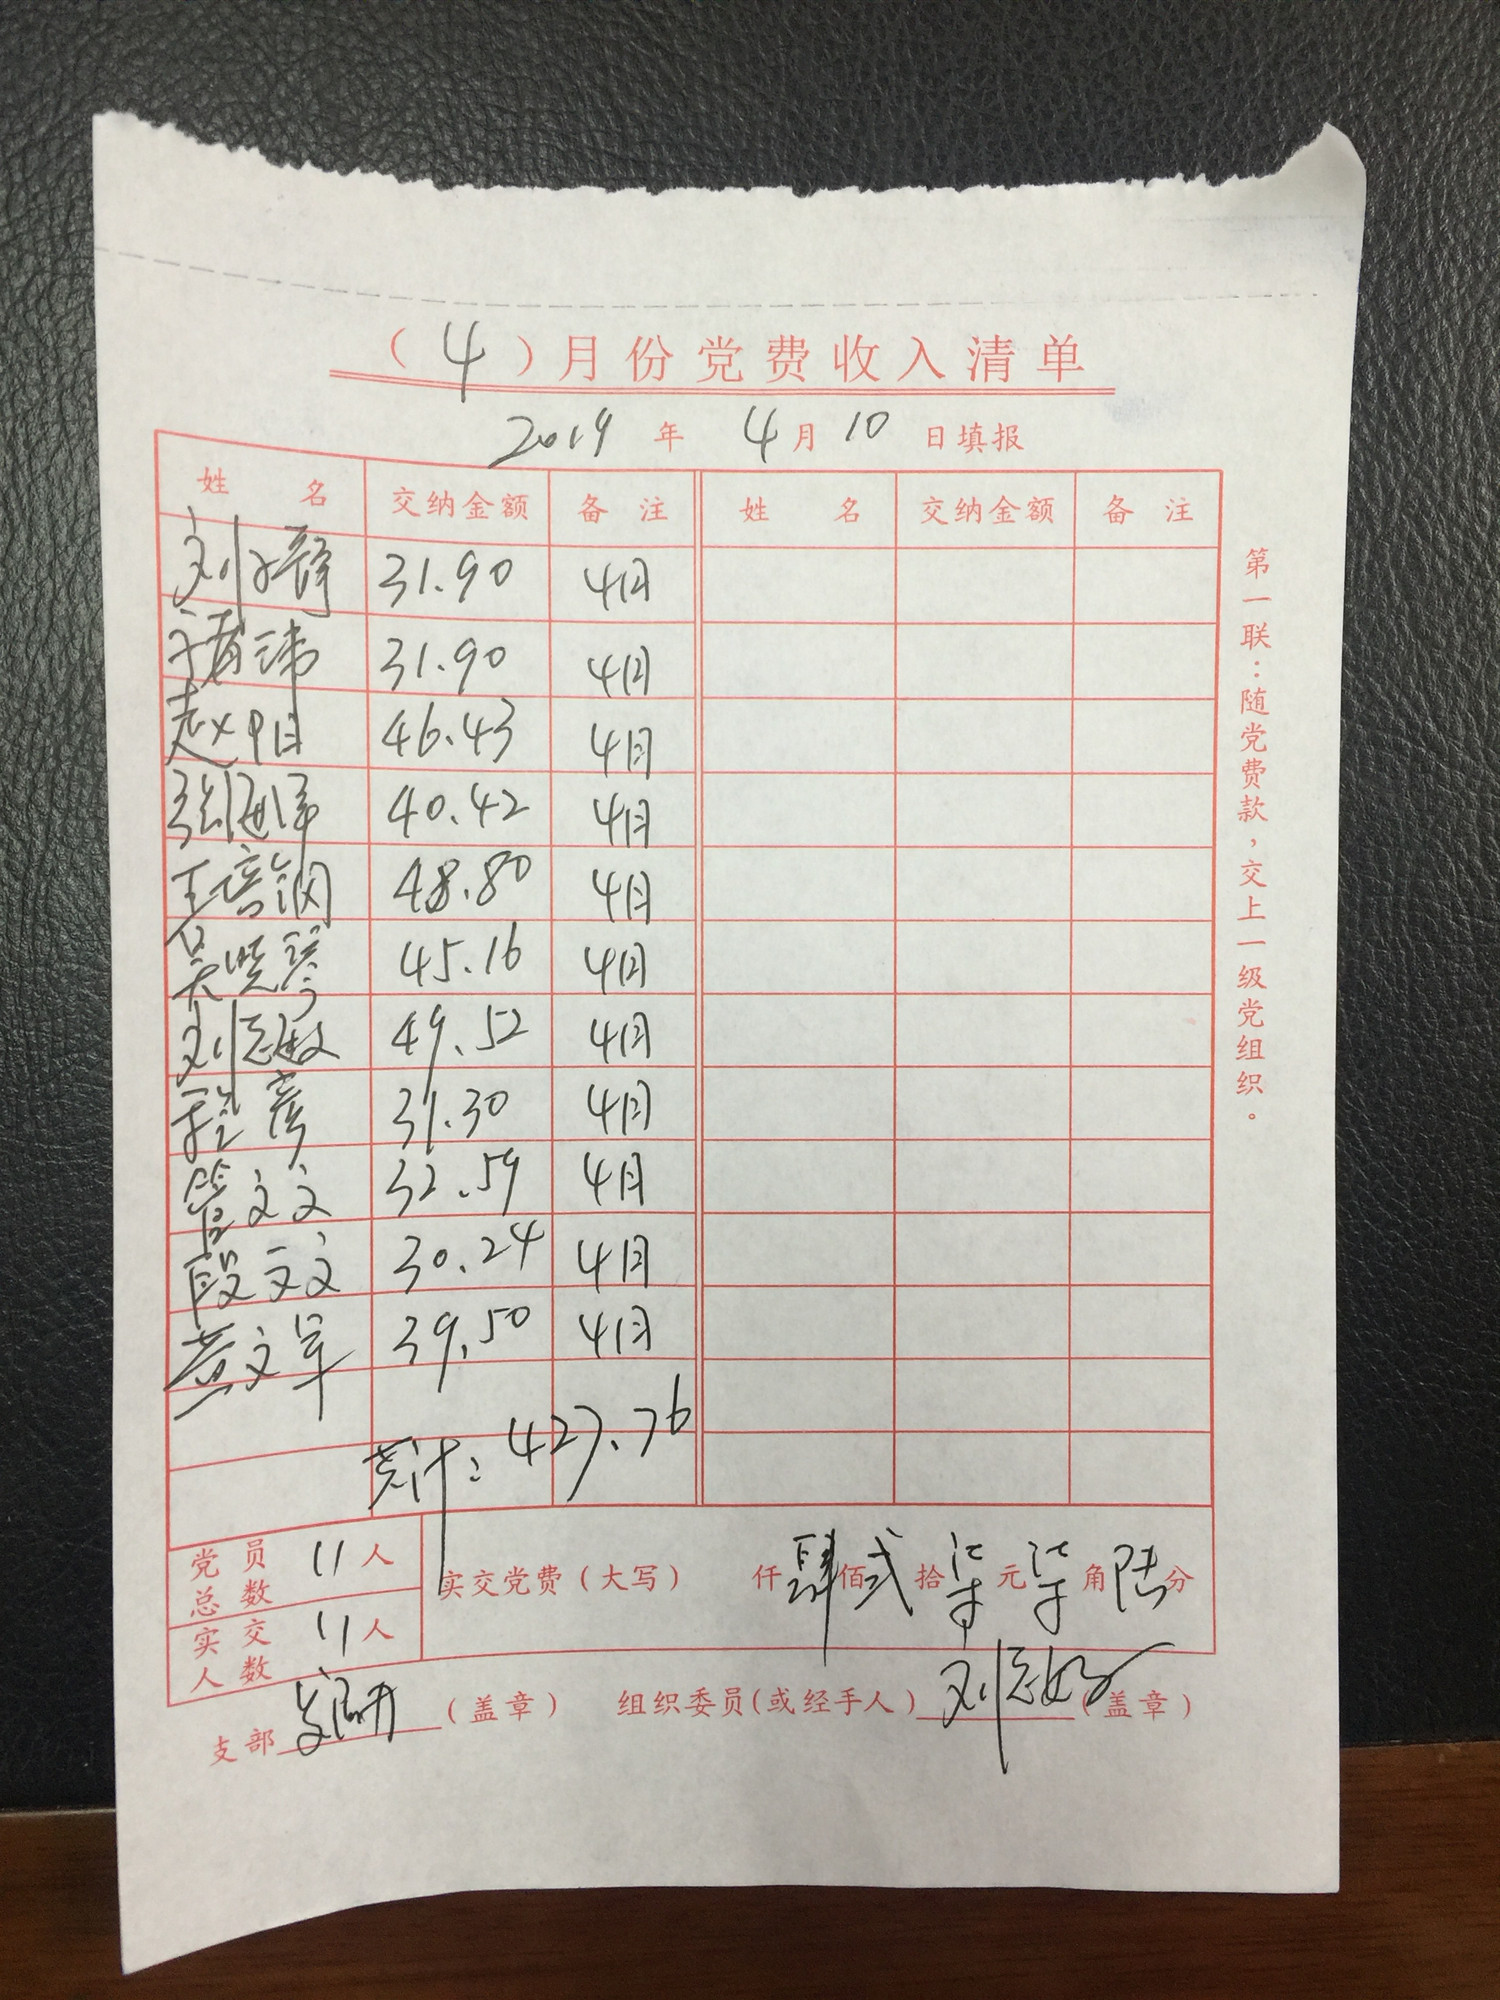 （4）月份党费收入清单
2019 年 4 月 10 日填报
姓 名 交纳金额 备 注 姓 名 交纳金额 备 注
31.90 4月
31.90 4月
赵阳 46.43 4月
40.42 4月
王培钢 48.80 4月
吴晓琴 45.16 4月
刘志敏 49.52 4月
程彦 31.30 4月
管文文 32.59 4月
段文文 30.24 4月
黄文军 39.50 4月
共计：427.76
党员总数 11人 实交党费（大写） 仟肆佰贰拾柒元柒角陆分
实交人数 11人
支部（盖章） 组织委员（或经手人）（盖章）
第一联：随党费款，交上一级党组织。